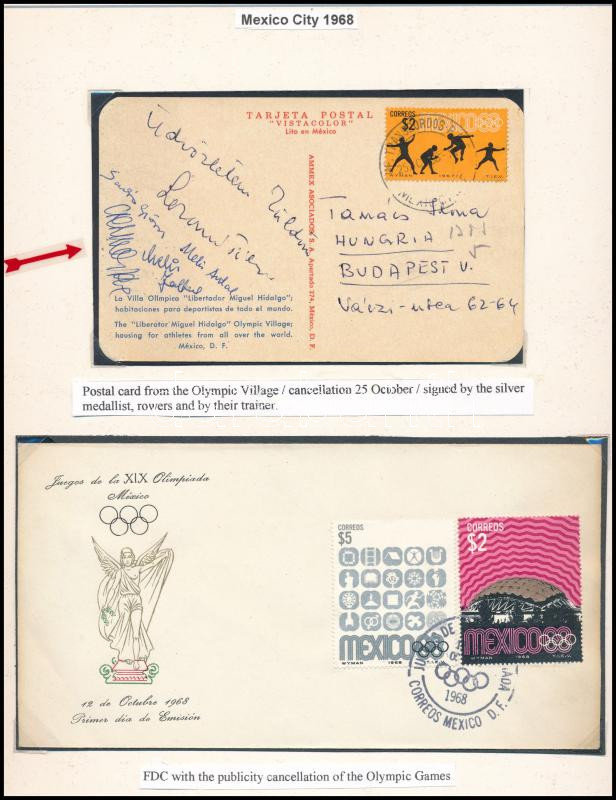 Mexico City 1968
TARJETA POSTAL
"VISTACOLOR"
Lito en México
CORREOS
$2
MEXICO
WYMAN 1967 T.I.E.V.
Üdvözletem küldöm
AMMEX ASOCIADOS, S. A., Apartado 274, México, D. F.
Tamás Ilona
HUNGRIA
BUDAPEST V.
Váczi-utca 62-64
La Villa Olímpica "Libertador Miguel Hidalgo";
habitaciones para deportistas de todo el mundo.
The "Liberator Miguel Hidalgo" Olympic Village;
housing for athletes from all over the world.
México, D. F.
Postal card from the Olympic Village / cancellation 25 October / signed by the silver
medallist, rowers and by their trainer.
Juegos de la XIX Olimpiada
México
CORREOS
$5
MEXICO
WYMAN 1968 T.I.E.V.
CORREOS
$2
MEXICO68
WYMAN 1968 T.I.E.V.
1968
CORREOS MEXICO D. F.
12 de Octubre 1968
Primer día de Emisión
FDC with the publicity cancellation of the Olympic Games